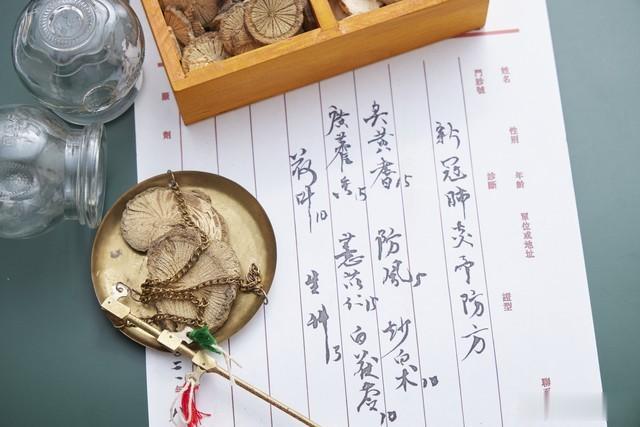 姓名 性別 年齡 單位或地址
門診號 診斷 證型
新冠肺炎予防方
炙黄耆15 防風5 炒术10
广藿香5 薏苡仁15 白茯苓10
荷叶10 生艸3
劑